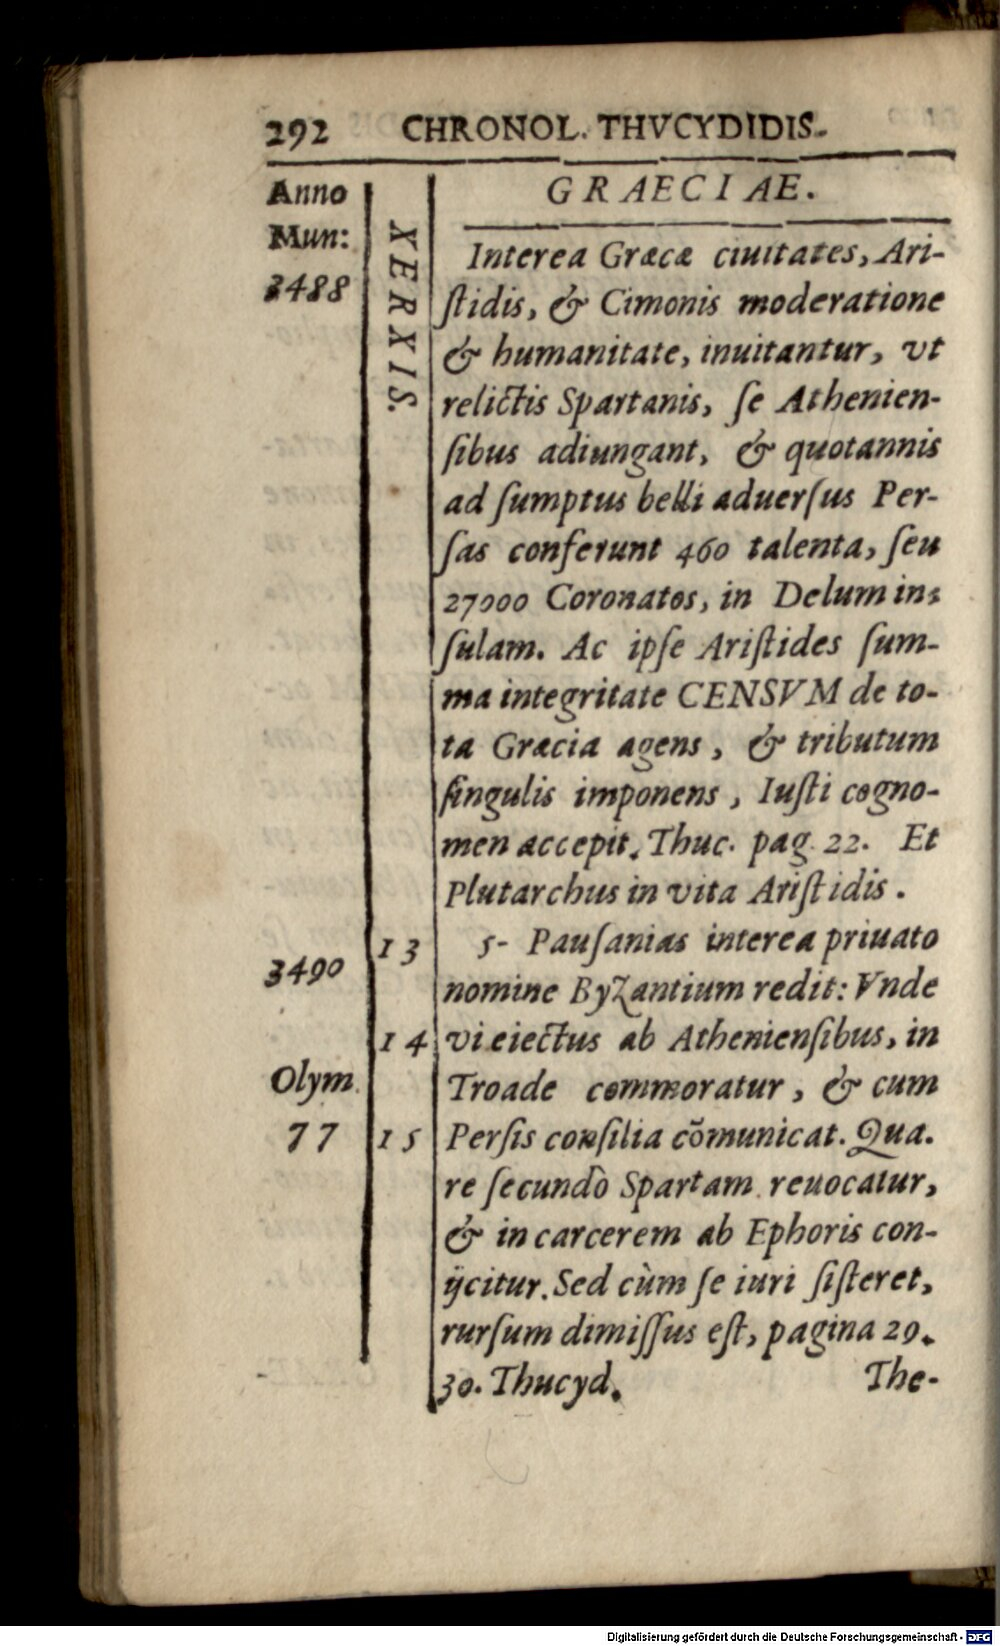 292 CHRONOL. THVCYDIDIS.
Anno
Mun:
3488
XERXIS.
GRAECIAE.
Interea Græcæ ciuitates, Ari-
ſtidis, & Cimonis moderatione
& humanitate, inuitantur, vt
relictis Spartanis, ſe Athenien-
ſibus adiungant, & quotannis
ad ſumptus belli aduerſus Per-
ſas conferunt 460 talenta, ſeu
27000 Coronatos, in Delum in-
ſulam. Ac ipſe Ariſtides ſum-
ma integritate CENSVM de to-
ta Græcia agens, & tributum
ſingulis imponens, Iuſti cogno-
men accepit. Thuc. pag. 22. Et
Plutarchus in vita Ariſtidis.
3490
13 5- Pauſanias interea priuato
nomine Byzantium redit: Vnde
14 vi eiectus ab Athenienſibus, in
Olym.
Troade commoratur, & cum
77
15 Perſis conſilia cōmunicat. Qua.
re ſecundò Spartam reuocatur,
& in carcerem ab Ephoris con-
ijcitur. Sed cùm ſe iuri ſiſteret,
rurſum dimiſſus eſt, pagina 29.
30. Thucyd. The-
Digitalisierung gefördert durch die Deutsche Forschungsgemeinschaft - DFG